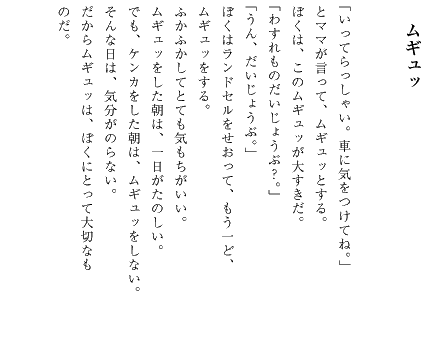 ムギュッ
「いってらっしゃい。車に気をつけてね。」
とママが言って、ムギュッとする。
ぼくは、このムギュッが大すきだ。
「わすれものだいじょうぶ?。」
「うん、だいじょうぶ。」
ぼくはランドセルをせおって、もう一ど、
ムギュッをする。
ふかふかしてとても気もちがいい。
ムギュッをした朝は、一日がたのしい。
でも、ケンカをした朝は、ムギュッをしない。
そんな日は、気分がのらない。
だからムギュッは、ぼくにとって大切なも
のだ。